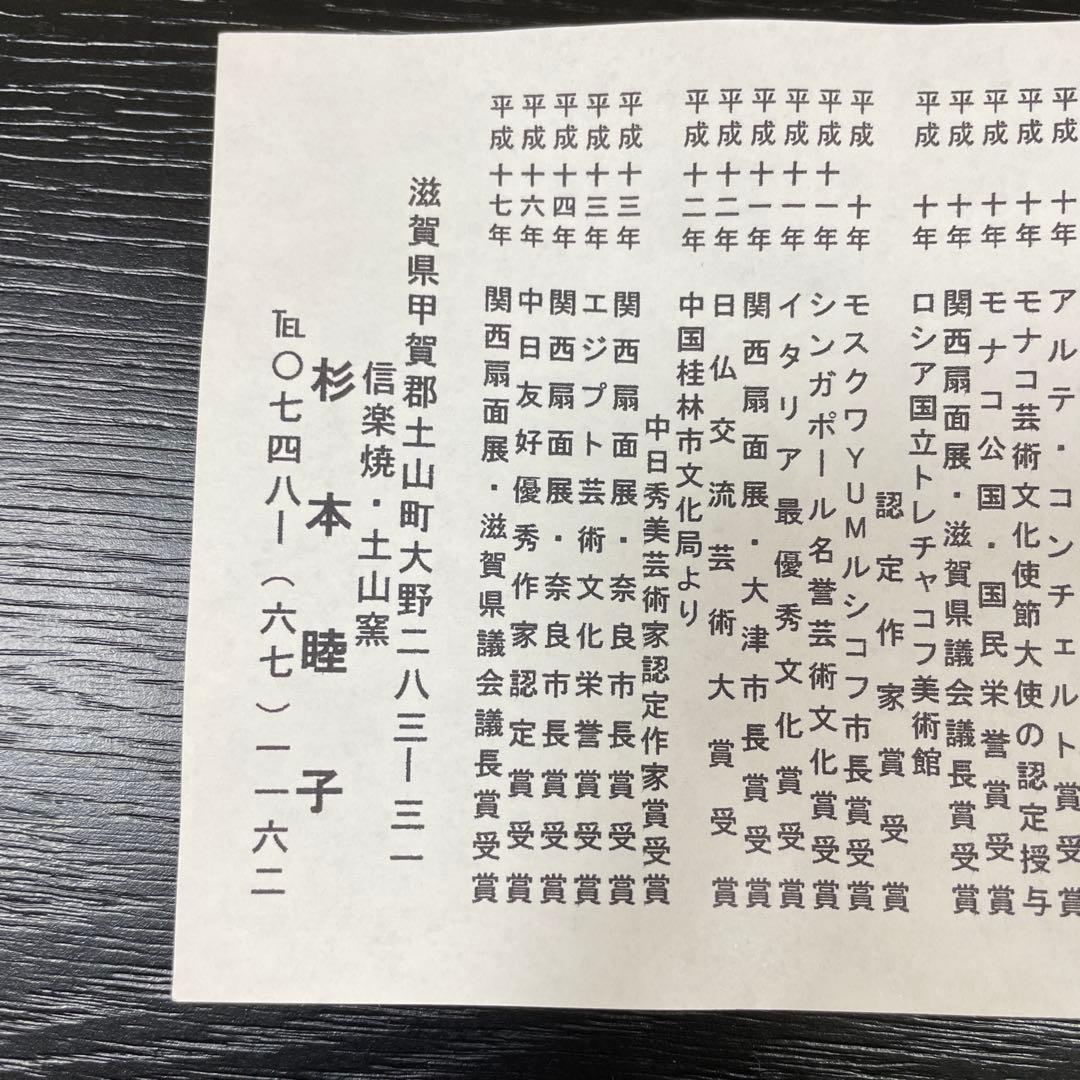 平成 十年 アルテ・コンチェルト賞受賞
平成 十年 モナコ芸術文化使節大使の認定授与
平成 十年 モナコ公国・国民栄誉賞受賞
平成 十年 関西扇面展・滋賀県議会議長賞受賞
平成 十年 ロシア国立トレチャコフ美術館
認定作家賞受賞
平成 十年 モスクワYUMルシコフ市長賞受賞
平成十一年 シンガポール名誉芸術文化賞受賞
平成十一年 イタリア最優秀文化賞受賞
平成十一年 関西扇面展・大津市長賞受賞
平成十二年 日仏交流芸術大賞受賞
平成十二年 中国桂林市文化局より
中日秀美芸術家認定作家賞受賞
平成十三年 関西扇面展・奈良市長賞受賞
平成十三年 エジプト芸術文化栄誉賞受賞
平成十四年 関西扇面展・奈良市長賞受賞
平成十六年 中日友好優秀作家認定賞受賞
平成十七年 関西扇面展・滋賀県議会議長賞受賞
滋賀県甲賀郡土山町大野二八三―三一
信楽焼・土山窯
杉本睦子
℡〇七四八―(六七)一一六二